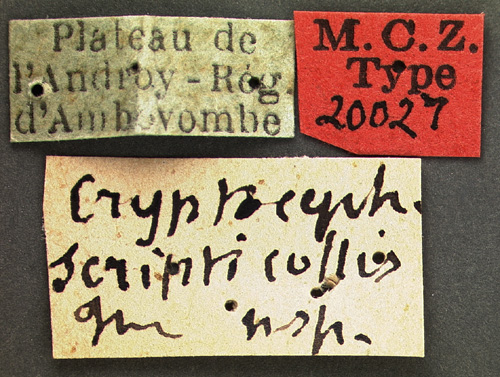 Plateau de
l'Androy - Rég
d'Ambovombe
M.C.Z.
Type
20027
Cryptoceph.
scripticollis
n sp.